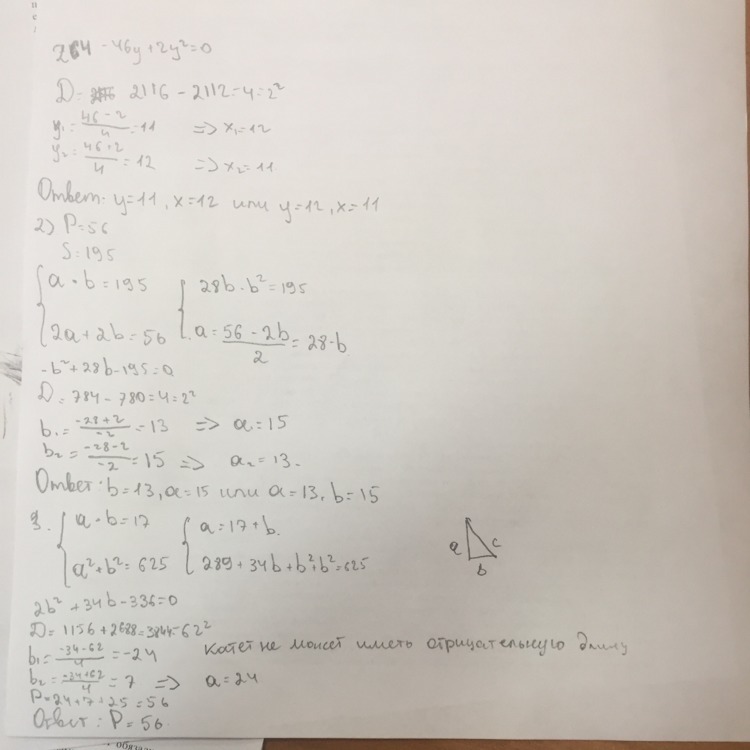 264 - 46y + 2y² = 0
D = 2116 - 2112 = 4 = 2²
y₁ = (46 - 2)/4 = 11 => x₁ = 12
y₂ = (46 + 2)/4 = 12 => x₂ = 11
Ответ: y = 11, x = 12 или y = 12, x = 11
2) P = 56
S = 195
{ a · b = 195 { 28b - b² = 195
2a + 2b = 56 a = (56 - 2b)/2 = 28 - b
-b² + 28b - 195 = 0
D = 784 - 780 = 4 = 2²
b₁ = (-28 + 2)/-2 = 13 => a = 15
b₂ = (-28 - 2)/-2 = 15 => a₂ = 13.
Ответ: b = 13, a = 15 или a = 13, b = 15
3. { a - b = 17 { a = 17 + b.
a² + b² = 625 289 + 34b + b² + b² = 625
a c
b
2b² + 34b - 336 = 0
D = 1156 + 2688 = 3844 = 62²
b₁ = (-34 - 62)/4 = -24 Катет не может иметь отрицательную длину
b₂ = (-34 + 62)/4 = 7 => a = 24
P = 24 + 7 + 25 = 56
Ответ: P = 56.